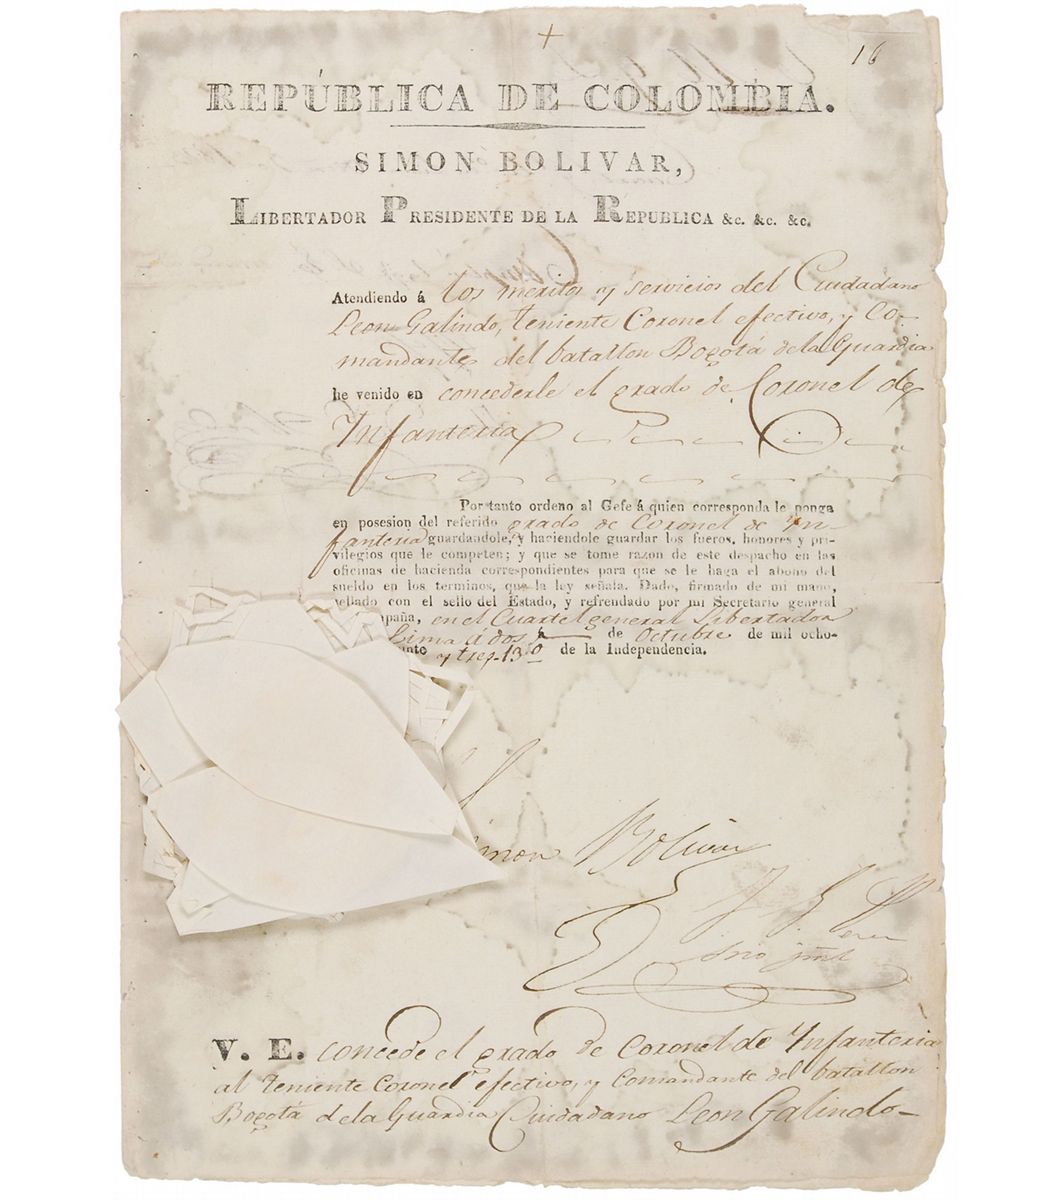 16
REPÚBLICA DE COLOMBIA.
SIMON BOLIVAR,
LIBERTADOR PRESIDENTE DE LA REPUBLICA &c. &c. &c.
Atendiendo á los meritos y servicios del Ciudadano
Leon Galindo, teniente Coronel efectivo, y Co-
mandante del batallon Bogotá de la Guardia
he venido en concederle el grado de Coronel de
Infanteria
Por tanto ordeno al Gefe á quien corresponda le ponga
en posesion del referido grado de Coronel de In-
fanteria guardandole, y haciendole guardar los fueros, honores y pri-
vilegios que le competen; y que se tome razon de este despacho en las
oficinas de hacienda correspondientes para que se le haga el abono del
sueldo en los terminos, que la ley señala. Dado, firmado de mi mano,
sellado con el sello del Estado, y refrendado por mi Secretario general
paña, en el Cuartel general Libertador
Lima á dos de Octubre de mil ocho-
y tres-13º de la Independencia.
Simon Bolivar
V. E. concede el grado de Coronel de Infanteria
al teniente Coronel efectivo, y Comandante del batallon
Bogotá de la Guardia Ciudadano Leon Galindo-